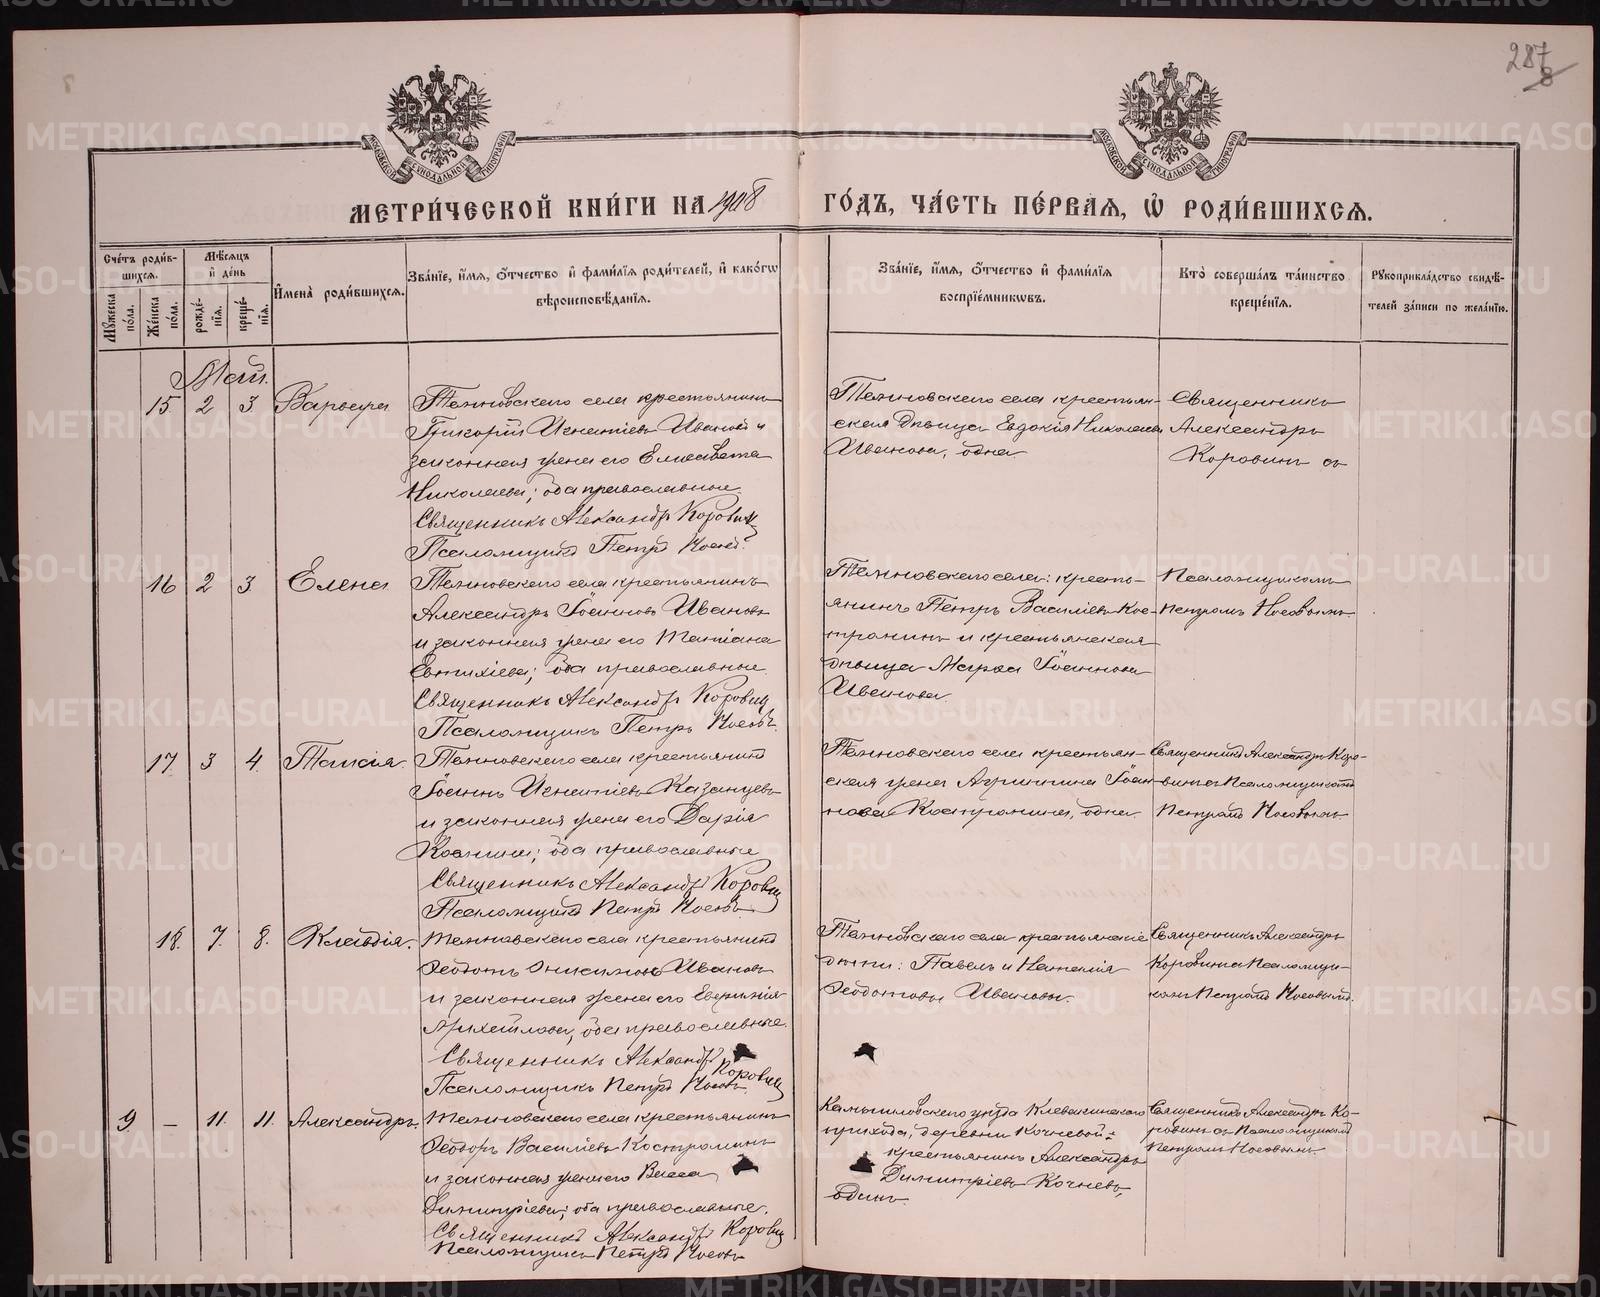 287
8
МЕТРИ́ЧЕСКОЙ КНИ́ГИ НА 1908 ГО́ДЪ, ЧА́СТЬ ПЕ́РВАѦ, Ѽ РОДИ́ВШИХСѦ.
Сче́тъ роди́вшихсѧ.
Мꙋ́жеска по́ла.
Же́нска по́ла.
Мѣ́сѧцъ и҆ де́нь
рожде́нїѧ.
креще́нїѧ.
И҆мена̀ роди́вшихсѧ.
Зва́нїе, и҆́мѧ, ѻ҆́тчество и҆ фами́лїѧ роди́телей, и҆ како́гѡ
вѣроисповѣ́данїѧ.
Зва́нїе, и҆́мѧ, ѻ҆́тчество и҆ фами́лїѧ
воспрїе́мникѡвъ.
Кто̀ соверша́лъ та́инство
креще́нїѧ.
Рꙋкоприкла́дство свидѣ́-
телей за́писи по жела́нїю.
Май.
15 2 3 Варвара
Темновскаго села крестьянинъ
Григорій Игнатіевъ Ивановъ и
законная жена его Елисавета
Николаева; оба православные.
Священникъ Александръ Коровинъ
Псаломщикъ Петръ Носовъ.
Темновскаго села крестьян-
ская дѣвица Евдокія Николаева
Иванова, одна.
Священникъ
Александръ
Коровинъ съ
16 2 3 Елена
Темновскаго села крестьянинъ
Александръ Іоанновъ Ивановъ
и законная жена его Татіана
Евтихіева; оба православные.
Священникъ Александръ Коровинъ
Псаломщикъ Петръ Носовъ.
Темновскаго села: кресть-
янинъ Петръ Василіевъ Кос-
тромин и крестьянская
дѣвица Марѳа Іоаннова
Иванова.
Псаломщикомъ
Петромъ Носовымъ.
17. 3 4. Таисія.
Темновскаго села крестьянинъ
Іоаннъ Игнатіевъ Казанцевъ
и законная жена его Дарія
Космина; оба православные
Священникъ Александръ Коровинъ
Псаломщикъ Петръ Носовъ.
Темновскаго села крестьян-
ская жена Агриппина Іоан-
нова Костромина, одна.
Священникъ Александръ Коро-
винъ съ Псаломщикомъ
Петромъ Носовымъ
18. 7. 8. Клавдія.
Темновскаго села крестьянинъ
Ѳеодотъ Онисимовъ Ивановъ
и законная жена его Евфимія
Михайлова, оба православные.
Священникъ Александръ Коровинъ
Псаломщикъ Петръ Носовъ.
Темновскаго села крестьянскіе
дѣти: Павелъ и Наталія
Ѳеодотовы Ивановы.
Священникъ Александръ
Коровинъ съ Псаломщи-
комъ Петромъ Носовымъ.
9 – 11. 11. Александръ.
Темновскаго села крестьянинъ
Ѳеодоръ Василіевъ Костроминъ
и законная жена его Васса
Димитріева; оба православные.
Священникъ Александръ Коровинъ
Псаломщикъ Петръ Носовъ
Камышловскаго уѣзда Клевакинскаго
прихода, деревни Кочневой:
крестьянинъ Александръ
Димитріевъ Кочневъ,
одинъ.
Священникъ Александръ Ко-
ровинъ съ Псаломщикомъ
Петромъ Носовымъ